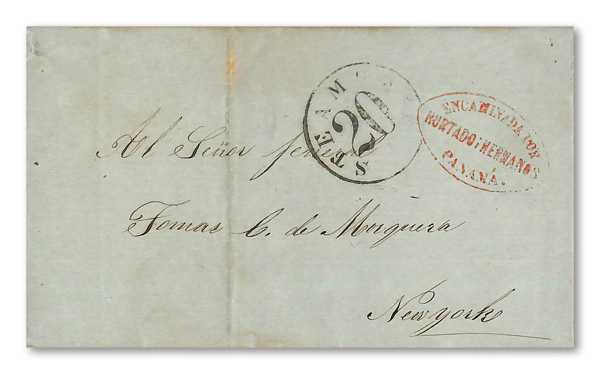 STEAMSHIP
20
ENCAMINADA POR
HURTADO; HERMANOS
PANAMÁ.
Al Señor Jeneral
Tomas C. de Mosquera
New york